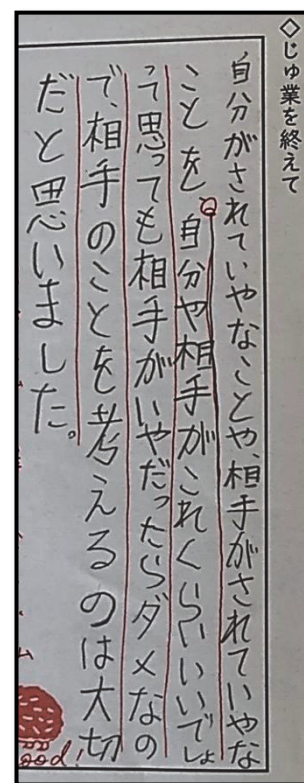 ◇じゅ業を終えて
自分がされていやなことや、相手がされていやな
ことを自分や相手がこれくらいいいでしょ
って思っても相手がいやだったらダメなの
で、相手のことを考えるのは大切
だと思いました。
good!